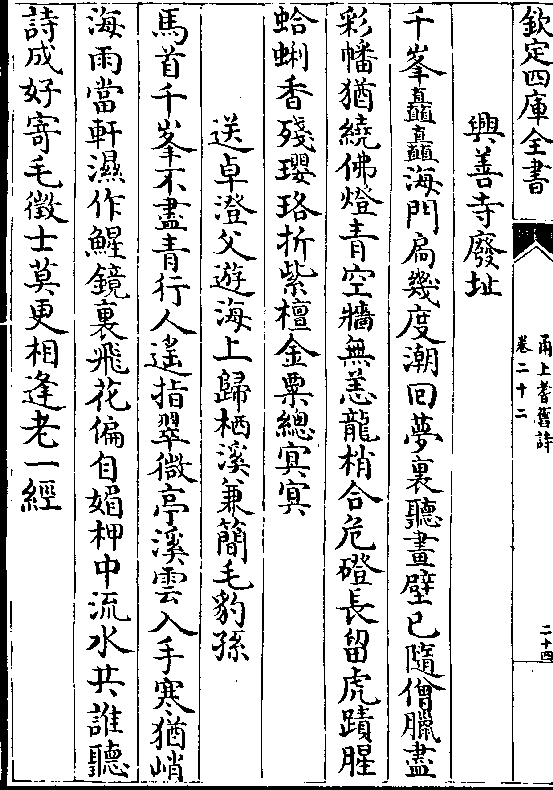 欽定四庫全書
甬上耆舊詩
卷二十二
二十四
興善寺廢址
千峯矗矗海門扄幾度潮回夢裏聽畫壁已隨僧臘盡
彩幡猶繞佛燈青空牆無恙龍梢合危磴長留虎蹟腥
蛤蜊香殘瓔珞折紫檀金粟總寞寞
送卓澄父遊海上歸栖溪兼簡毛豹孫
馬首千峯不盡青行人遙指翠微亭溪雲入手寒猶峭
海雨當軒濕作鯹鏡裏飛花偏自媚柙中流水共誰聽
詩成好寄毛徵士莫更相逢老一經